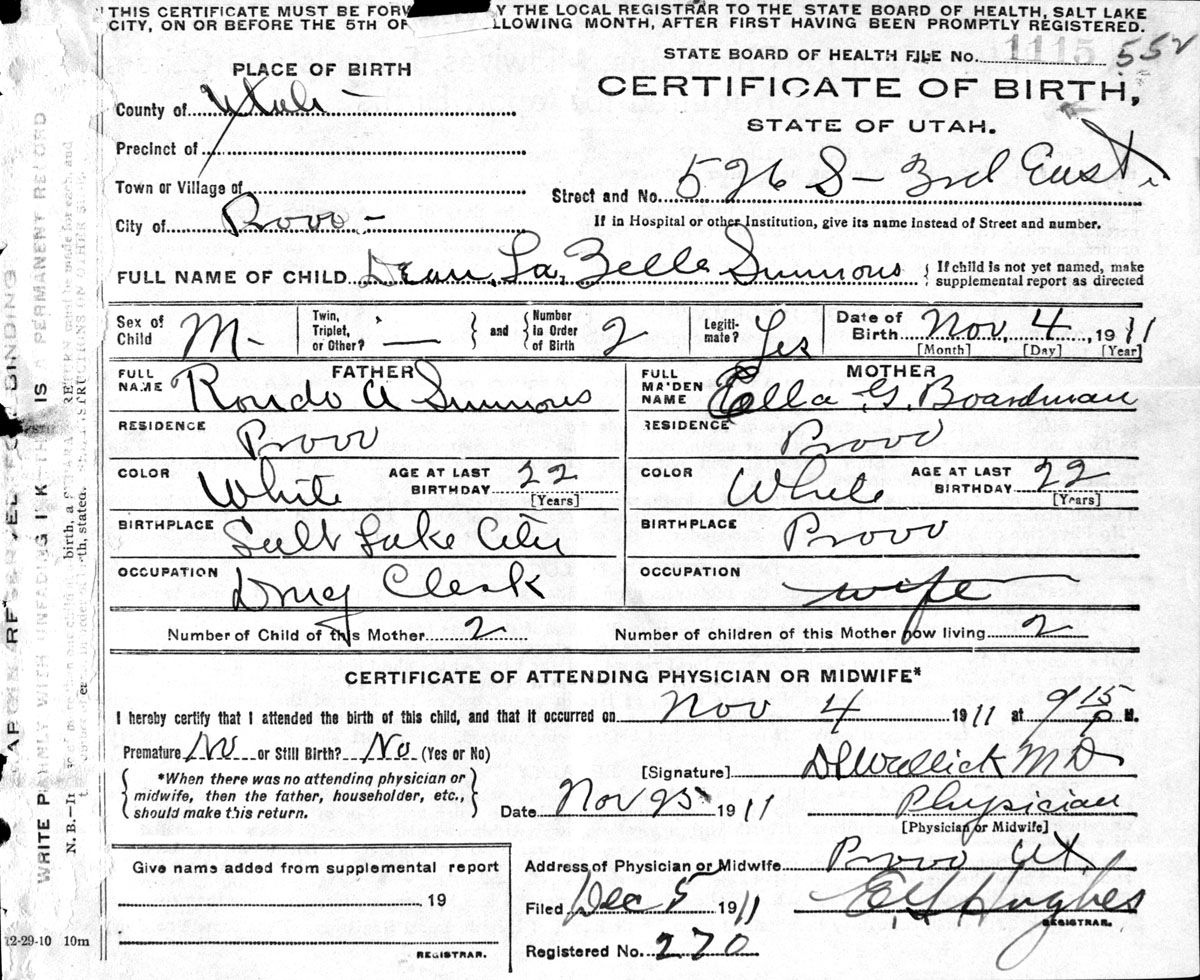 THIS CERTIFICATE MUST BE FORW Y THE LOCAL REGISTRAR TO THE STATE BOARD OF HEALTH, SALT LAKE
CITY, ON OR BEFORE THE 5TH OF LLOWING MONTH, AFTER FIRST HAVING BEEN PROMPTLY REGISTERED.
STATE BOARD OF HEALTH FILE No. 1115 552
PLACE OF BIRTH
CERTIFICATE OF BIRTH,
County of Utah
STATE OF UTAH.
Precinct of
Town or Village of
Street and No. 526 S - 3rd East
City of Provo
If in Hospital or other Institution, give its name instead of Street and number.
FULL NAME OF CHILD Dean La Zelle Simmons { If child is not yet named, make
supplemental report as directed
Sex of Child M - Twin, Triplet, or Other? — } and { Number in Order of Birth 2 Legiti-mate? Yes Date of Birth Nov, 4, 1911
[Month] [Day] [Year]
FATHER MOTHER
FULL NAME Rondo A Simmons FULL MAIDEN NAME Ella G. Boardman
RESIDENCE Provo RESIDENCE Provo
COLOR White AGE AT LAST BIRTHDAY 22 [Years] COLOR White AGE AT LAST BIRTHDAY 22 [Years]
BIRTHPLACE Salt Lake City BIRTHPLACE Provo
OCCUPATION Drug Clerk OCCUPATION wife
Number of Child of this Mother 2 Number of children of this Mother now living 2
CERTIFICATE OF ATTENDING PHYSICIAN OR MIDWIFE*
I hereby certify that I attended the birth of this child, and that it occurred on Nov 4 1911 at 9 15 P M.
Premature No or Still Birth? No (Yes or No)
[Signature] Wallick M D
{ *When there was no attending physician or
midwife, then the father, householder, etc.,
should make this return. }
Date Nov 25 1911 Physician
[Physician or Midwife]
Give name added from supplemental report
Address of Physician or Midwife Provo Ut
19
Filed Dec 5 1911 Hughes
REGISTRAR.
Registered No. 270
REGISTRAR.
12-29-10 10m
WRITE PLAINLY WITH UNFADING INK—THIS IS A PERMANENT RECORD
N. B.—